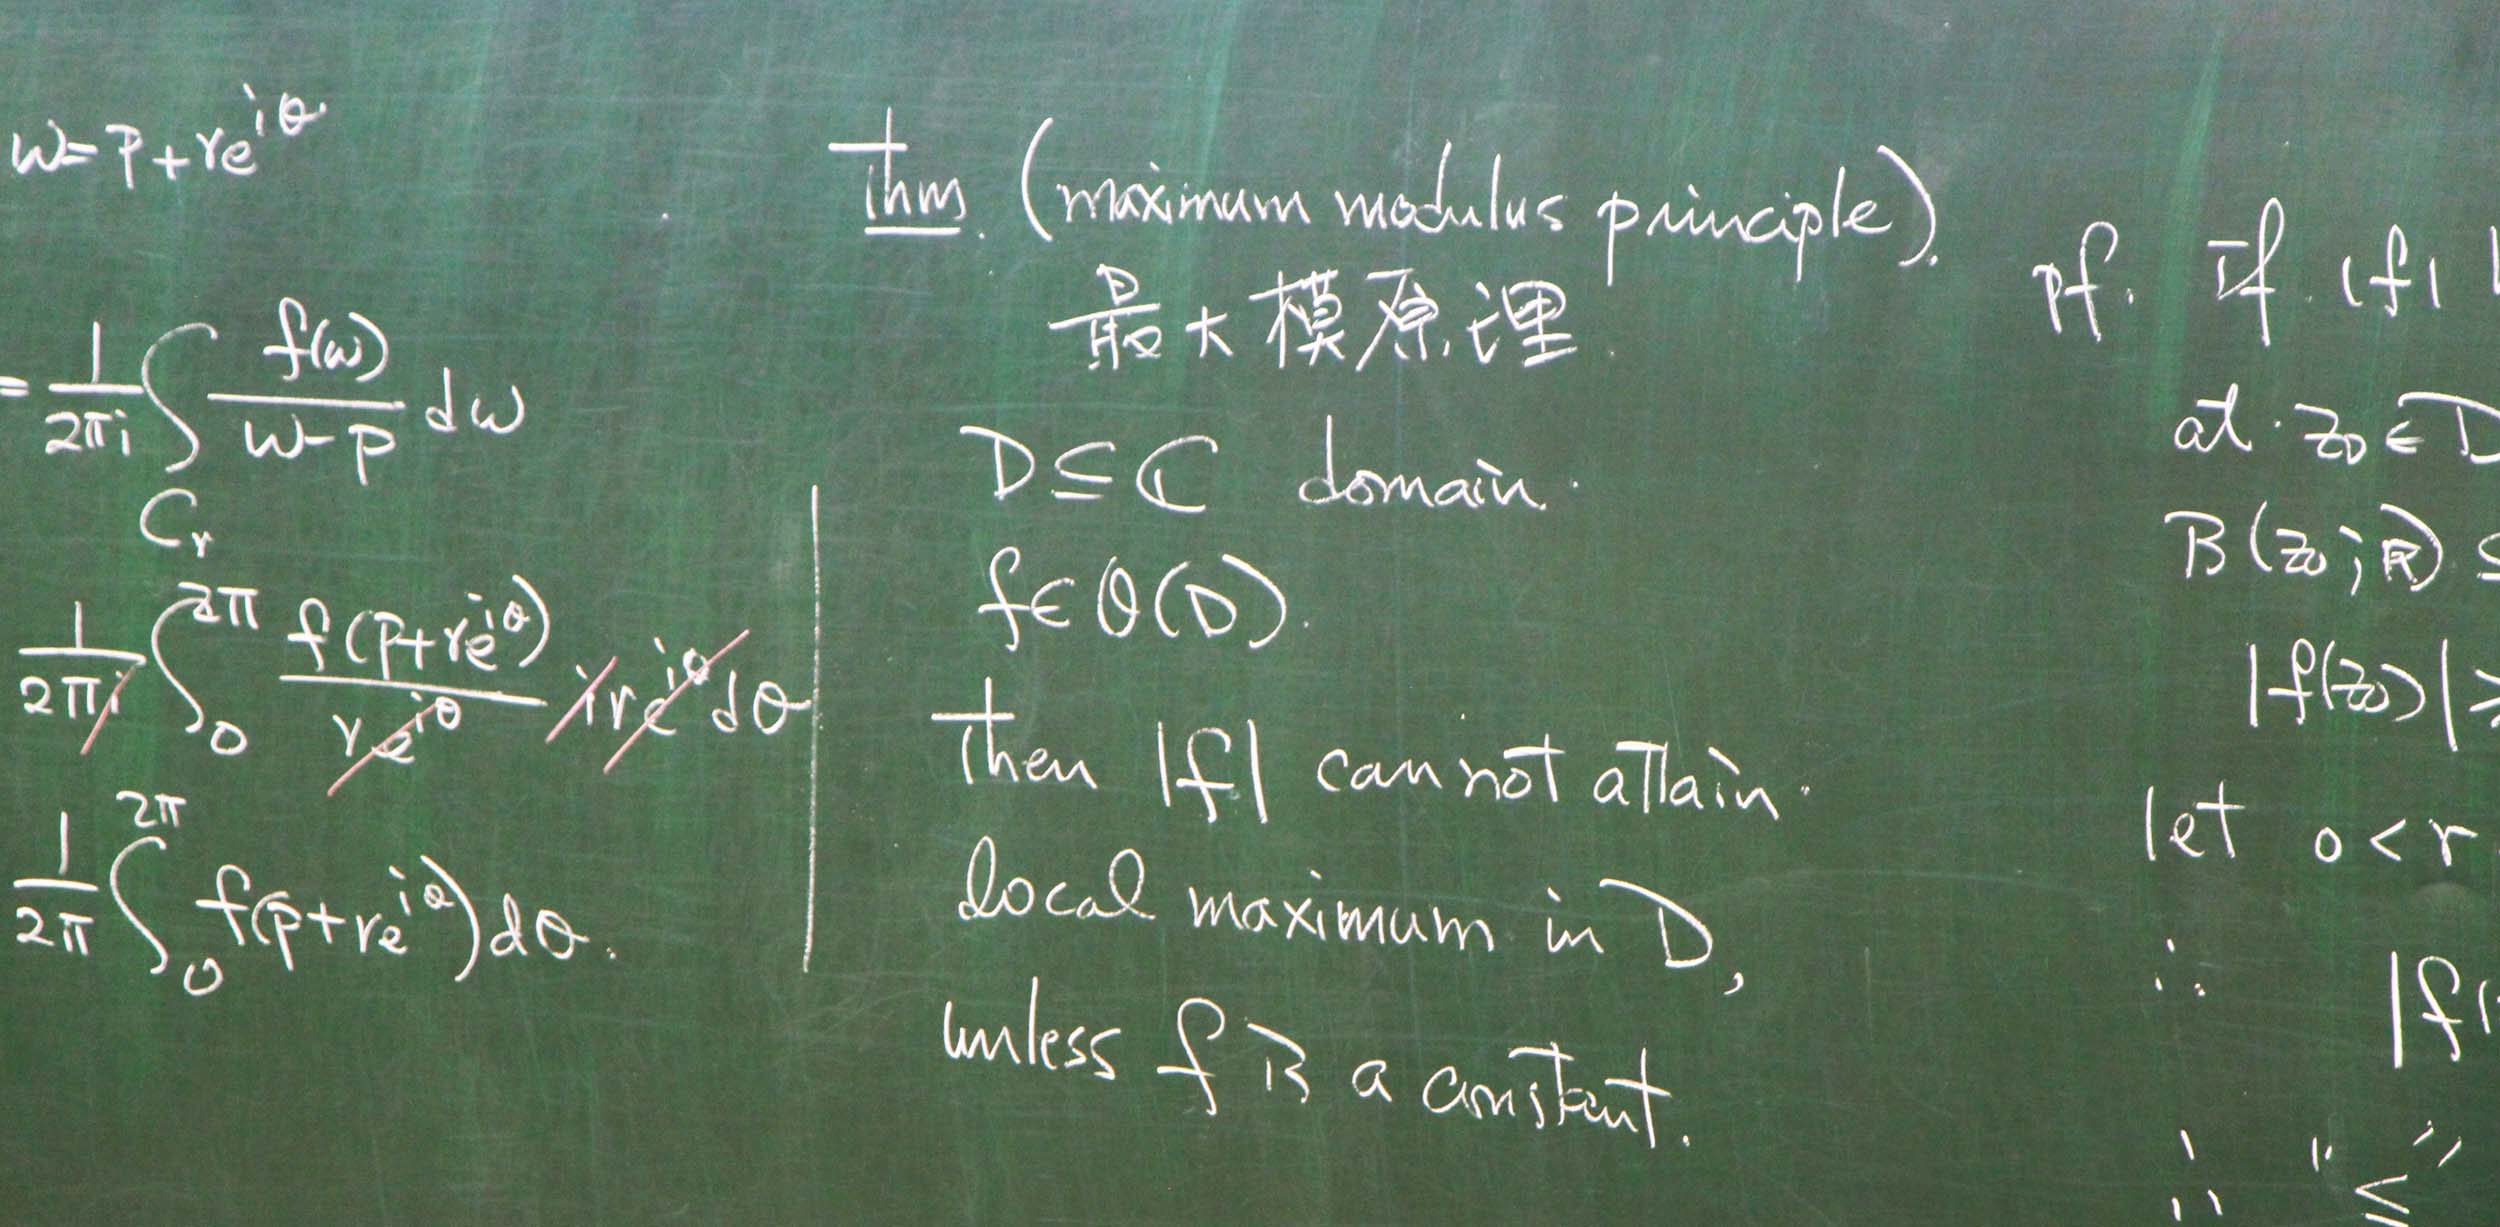 w=p+re^{iθ}
= \frac{1}{2πi} ∫_{C_r} \frac{f(w)}{w-p} dw
\frac{1}{2πi} ∫_0^{2π} \frac{f(p+re^{iθ})}{re^{iθ}} ire^{iθ} dθ
\frac{1}{2π} ∫_0^{2π} f(p+re^{iθ}) dθ.
Thm. (maximum modulus principle).
最大模原理.
D⊆ℂ domain.
f∈O(D).
Then |f| cannot attain
local maximum in D,
unless f is a constant.
pf. If |f|
at z_0∈D
B(z_0;R) ⊆
|f(z_0)|≥
let 0<r
∴ |f(
∴ "≤"